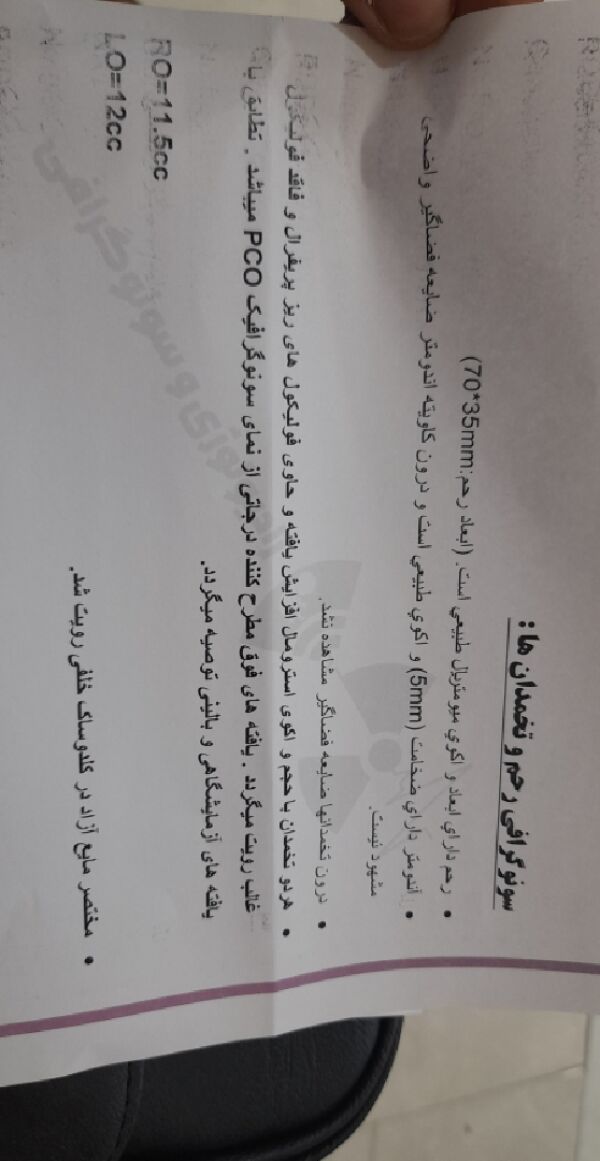 سونوگرافی رحم و تخمدان ها :
• رحم داراي ابعاد و اكوي ميومتريال طبيعي است. (ابعاد رحم:70*35mm)
• اندومتر داراي ضخامت (5mm) و اكوي طبيعي است و درون کاویته اندومتر ضایعه فضاگیر واضحی
مشهود نیست.
• درون تخمدانها ضایعه فضاگیر مشاهده نشد.
• هردو تخمدان با حجم و اکوی استرومال افزایش یافته و حاوی فولیکول های ریز پریفرال و فاقد فولیکول
غالب رویت میگردد . یافته های فوق مطرح کننده درجاتی از نمای سونوگرافیک PCO میباشد . تطابق با
یافته های آزمایشگاهی و بالینی توصیه میگردد.
RO=11.5cc
LO=12cc
• مختصر مایع آزاد در کلدوساک خلفی رویت شد.
و سونوگرافی